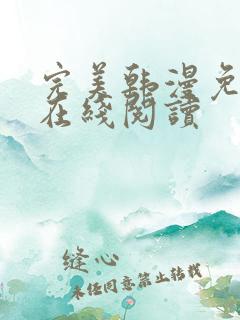 完美韩漫免
在线阅读
缝心
未经同意禁止转载